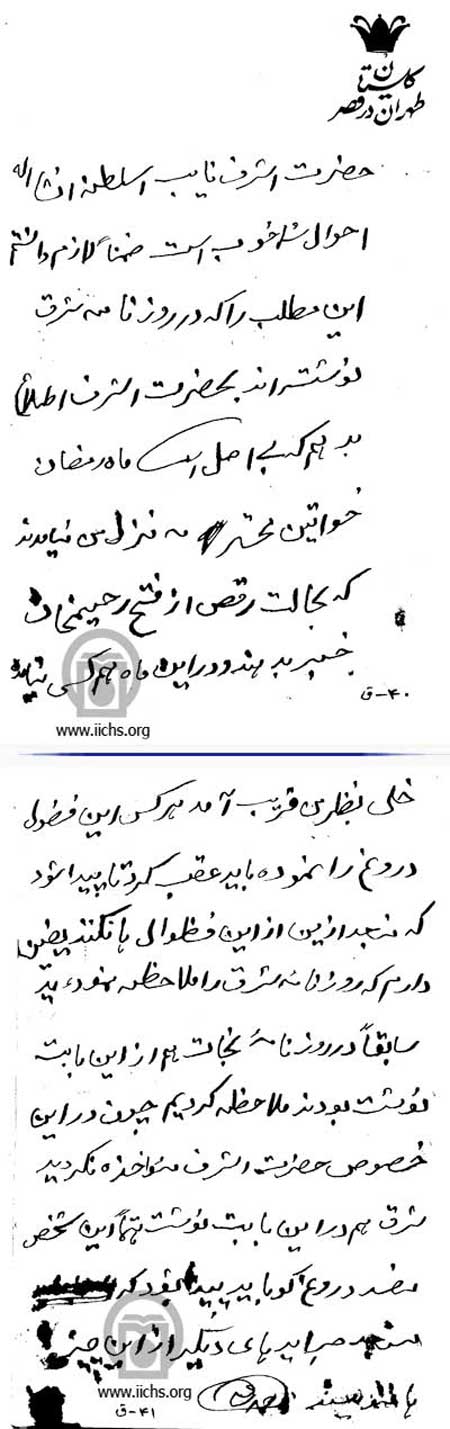 گلستان
طهران در قصر
حضرت اشرف نایب السلطنه انشاالله
احوال شما خوب است ضمناً لازم دانستم
این مطلب را که در روزنامه شرق
نوشته اند بحضرت اشرف اطلاع
بدهم که بی اصل است ماه رمضان
خواتین محترم به منزل من نیامدند
که بحالت رقص از فتح رحیمخان
خبر بدهند و در این ماه هم کسی نیامده
۴۰-ق
www.iichs.org
خلی بنظر من قریب آمد هر کس این فضول
دروغ را نموده باید عقب کرد تا پیدا شود
که من بعد از این از این فظوالی ها نکنند یقین
دارم که روزنامه شرق را ملاحظه نموده اید
سابقاً در روزنامهٔ نجات هم از این بابت
نوشته بودند ملاحظه کردیم چون در این
خصوص حضرت اشرف مئواخذه نکردید
شرق هم در این بابت نوشت حتماً این شخص
مفسد دروغ گو باید پیدا بشود که
جراید های دیگر از این چیز
ها ننویسند احمد
www.iichs.org
۴۱-ق